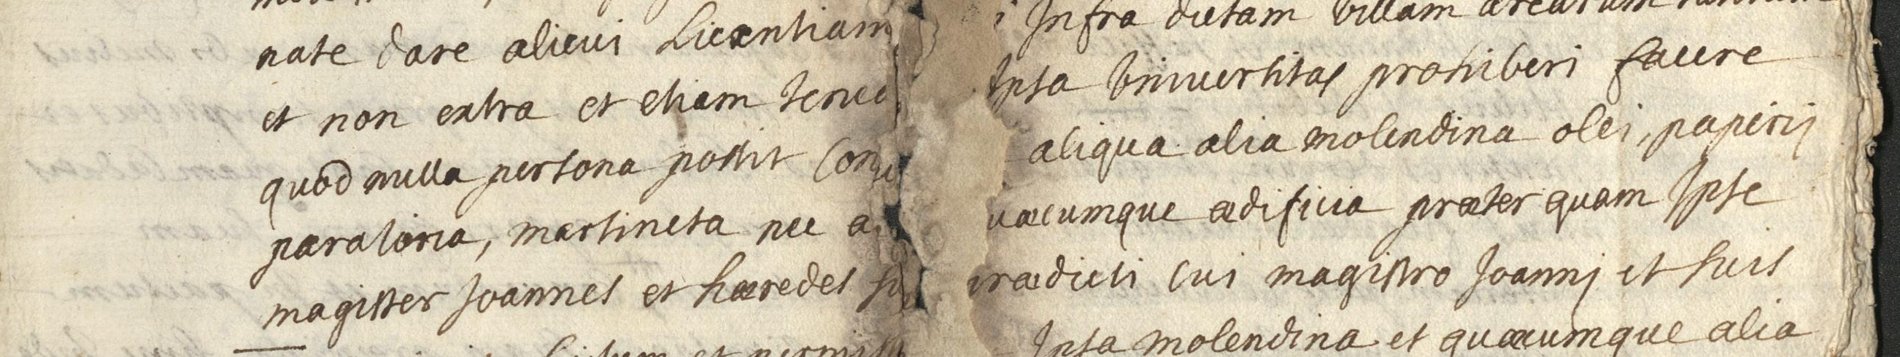 nate dare alicui licentiam infra dictam villam arearum
et non extra et etiam tenea ipsa universitas prohiberi facere
quod nulla persona possit con aliqua alia molendina olei, paperij
paratoria, martineta nec a uæcumque ædificia præterquam ipse
magister Joannes et hæredes su rædicti cui magistro Joannj et suis
et permiss ipsa molendina et quæcumque alia